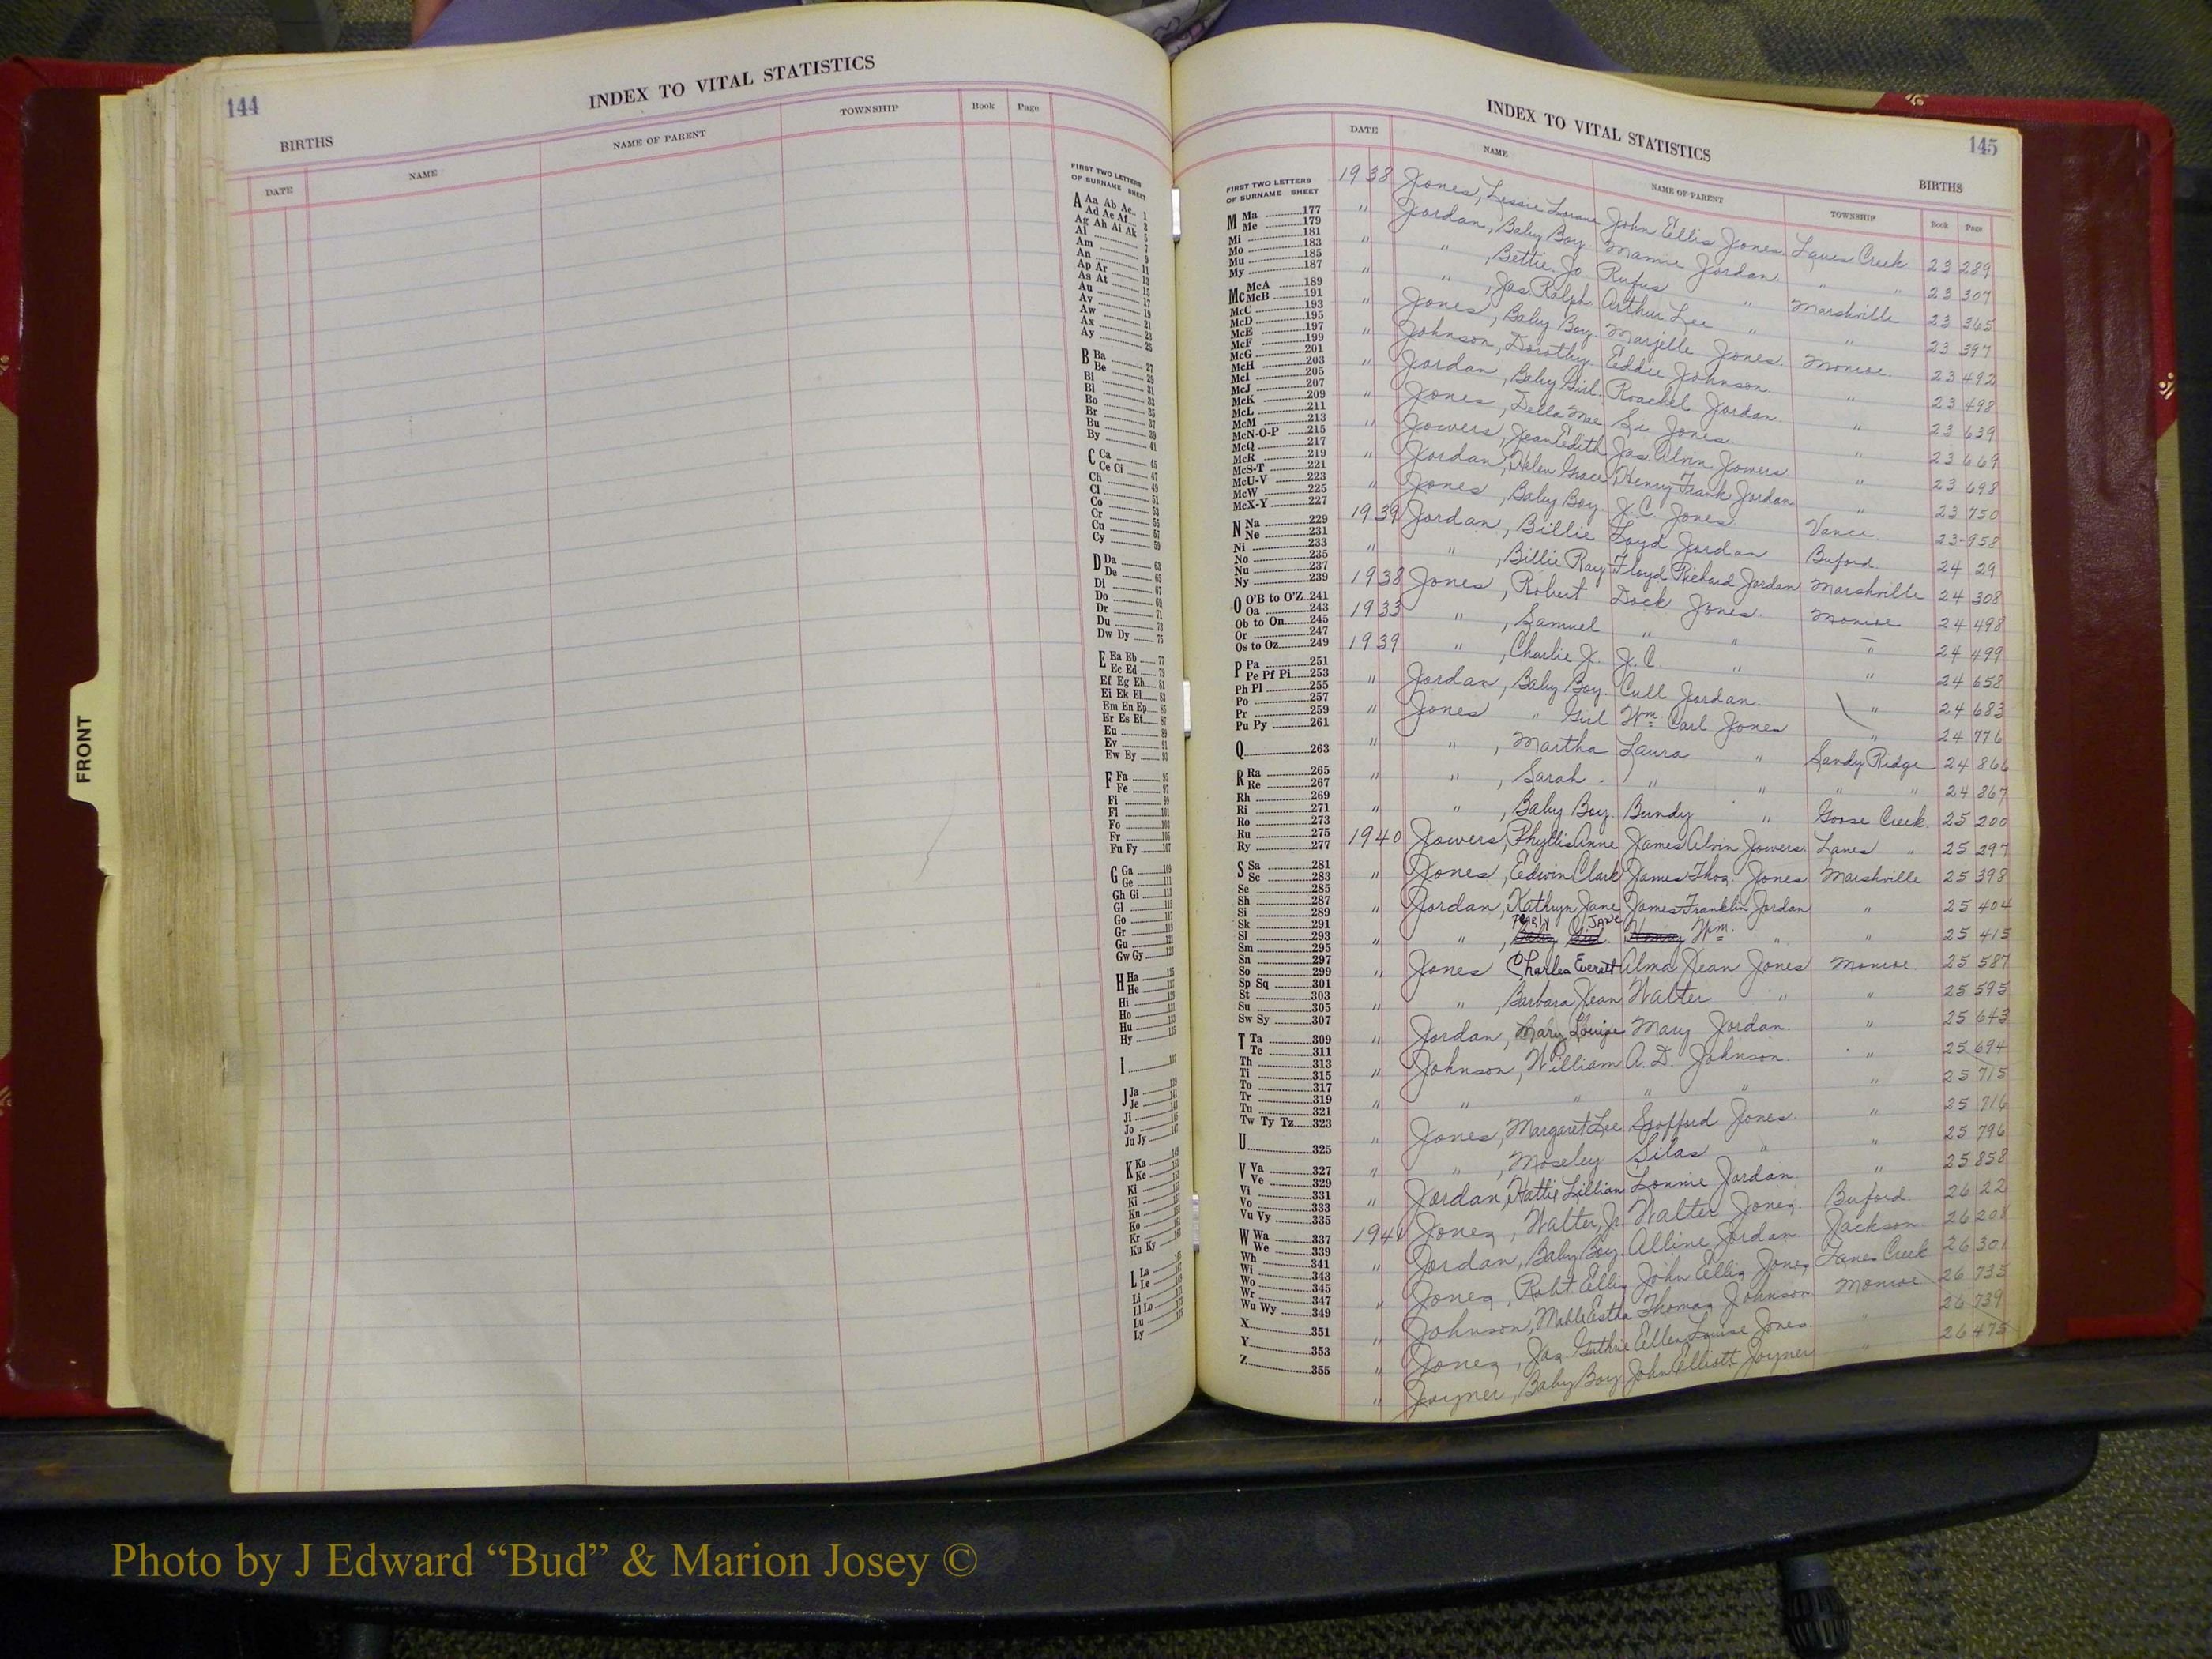 144
INDEX TO VITAL STATISTICS
BIRTHS
DATE NAME NAME OF PARENT TOWNSHIP Book Page
FIRST TWO LETTERS
OF SURNAME SHEET
A Aa Ab Ac 1
Ad Ae Af
Ag Ah Ai Ak
Al
Am
An
Ap Ar
As At
Au
Av
Aw
Ax
Ay
B Ba
Be
Bi
Bl
Bo
Br
Bu
By
C Ca
Ce Ci
Ch
Cl
Co
Cr
Cu
Cy
D Da
De
Di
Do
Dr
Du
Dw Dy
E Ea Eb
Ec Ed
Ef Eg Eh
Ei Ek El
Em En Ep
Er Es Et
Eu
Ev
Ew Ey
F Fa
Fe
Fi
Fl
Fo
Fr
Fu Fy
G Ga
Ge
Gh Gi
Gl
Go
Gr
Gu
Gw Gy
H Ha
He
Hi
Ho
Hu
Hy
I
J Ja
Je
Ji
Jo
Ju Jy
K Ka
Ke
Ki
Kl
Kn
Ko
Kr
Ku Ky
L La
Le
Li
Ll Lo
Lu
Ly
FRONT
INDEX TO VITAL STATISTICS
145
BIRTHS
DATE NAME NAME OF PARENT TOWNSHIP Book Page
FIRST TWO LETTERS
OF SURNAME SHEET
M Ma 177
Me 179
Mi 181
Mo 183
Mu 185
My 187
Mc McA 189
McB 191
McC 193
McD 195
McE 197
McF 199
McG 201
McH 203
McI 205
McJ 207
McK 209
McL 211
McM 213
McN-O-P 215
McQ 217
McR 219
McS-T 221
McU-V 223
McW 225
McX-Y 227
N Na 229
Ne 231
Ni 233
No 235
Nu 237
Ny 239
O O'B to O'Z 241
Oa 243
Ob to On 245
Or 247
Os to Oz 249
P Pa 251
Pe Pf Pi 253
Ph Pl 255
Po 257
Pr 259
Pu Py 261
Q 263
R Ra 265
Re 267
Rh 269
Ri 271
Ro 273
Ru 275
Ry 277
S Sa 281
Sc 283
Se 285
Sh 287
Si 289
Sk 291
Sl 293
Sm 295
Sn 297
So 299
Sp Sq 301
St 303
Su 305
Sw Sy 307
T Ta 309
Te 311
Th 313
Ti 315
To 317
Tr 319
Tu 321
Tw Ty Tz 323
U 325
V Va 327
Ve 329
Vi 331
Vo 333
Vu Vy 335
W Wa 337
We 339
Wh 341
Wi 343
Wo 345
Wr 347
Wu Wy 349
X 351
Y 353
Z 355
1938 Jones, Lessie Lorane John Ellis Jones. Lanes Creek 23 289
" Jordan, Baby Boy. Mamie Jordan. " " 23 307
" " , Bettie Jo. Rufus " Marshville 23 365
" " , Jas. Ralph. Arthur Lee " " 23 397
" Jones, Baby Boy. Marjelle Jones. Monroe. 23 492
" Johnson, Dorothy. Eddie Johnson " 23 498
" Jordan, Baby Girl. Roachel Jordan. " 23 639
" Jones, Della Mae Si Jones. " 23 669
" Jowers, Jean Edith Jas. Alvin Jowers " 23 698
" Jordan, Helen Grace Henry Frank Jordan " 23 750
" Jones, Baby Boy. J.C. Jones Vance. 23-958
1939 Jordan, Billie Loyd Jordan Buford. 24 29
" " , Billie Ray Floyd Richard Jordan Marshville 24 308
1938 Jones, Robert Dock Jones. Monroe 24 498
1933 " , Samuel " " " 24 499
1939 " , Charlie J. J.C. " " 24 658
" Jordan, Baby Boy. Cull Jordan. " 24 683
" Jones " Girl Wm. Carl Jones " 24 776
" " , Martha Laura " Sandy Ridge 24 866
" " , Sarah. " " " " 24 867
" " , Baby Boy. Bundy " Goose Creek. 25 200
1940 Jowers, Phyllis Anne James Alvin Jowers. Lanes " 25 297
" Jones, Edwin Clark James Thos. Jones Marshville 25 398
" Jordan, Kathryn Jane James Franklin Jordan " 25 404
" " , PEARLY JANE Wm. " " 25 415
" Jones Charles Everett Alma Jean Jones Monroe. 25 587
" " , Barbara Jean Walter " " 25 595
" Jordan, Mary Louise Mary Jordan. " 25 643
" Johnson, William A. D. Johnson. " 25 694
" " " " " " 25 715
" Jones, Margaret Lee Spofford Jones. " 25 716
" " , Moseley Silas " " 25 796
" Jordan, Hattie Lillian Lonnie Jordan. " 25 858
1941 Jones, Walter, Jr. Walter Jones Buford. 26 22
" Jordan, Baby Boy. Alline Jordan. Jackson. 26 208
" Jones, Robt Ellis John Ellis Jones Lanes Creek 26 301
" Johnson, Mable Estha Thomas Johnson Monroe 26 735
" Jones, Jas. Guthrie Ellen Louise Jones. " 26 739
" Joyner, Baby Boy John Elliott Joyner " 26 475
Photo by J Edward “Bud” & Marion Josey ©